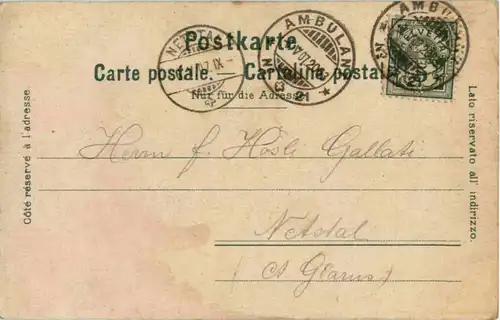 Postkarte.
Carte postale. Cartolina postale
Nur für die Adresse
Côté réservé à l'adresse.
Lato riservato all' indirizzo.
NETSTAL
07 IX
AMBULANT
21
AMBULANT
Herrn f. Hösli Gallati
Netstal
(Ct Glarus)